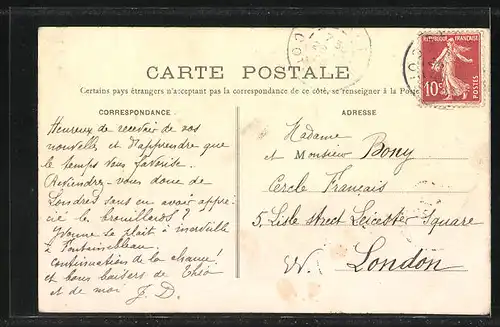 CARTE POSTALE
Certains pays étrangers n'acceptant pas la correspondance de ce côté, se renseigner à la Poste
CORRESPONDANCE
Heureux de recevoir de vos
nouvelles et d'apprendre que
le temps vous favorise.
Reviendrez-vous donc de
Londres sans en avoir appré-
cié le brouillard ?
Yvonne se plait à merveille
à Fontainebleau.
Continuation de la chance !
et bons baisers de
et de moi J. D.
ADRESSE
Madame
et Monsieur Bony
Cercle Français
5, Lisle street Leicester Square
W. London
REPUBLIQUE FRANÇAISE
10c
POSTES